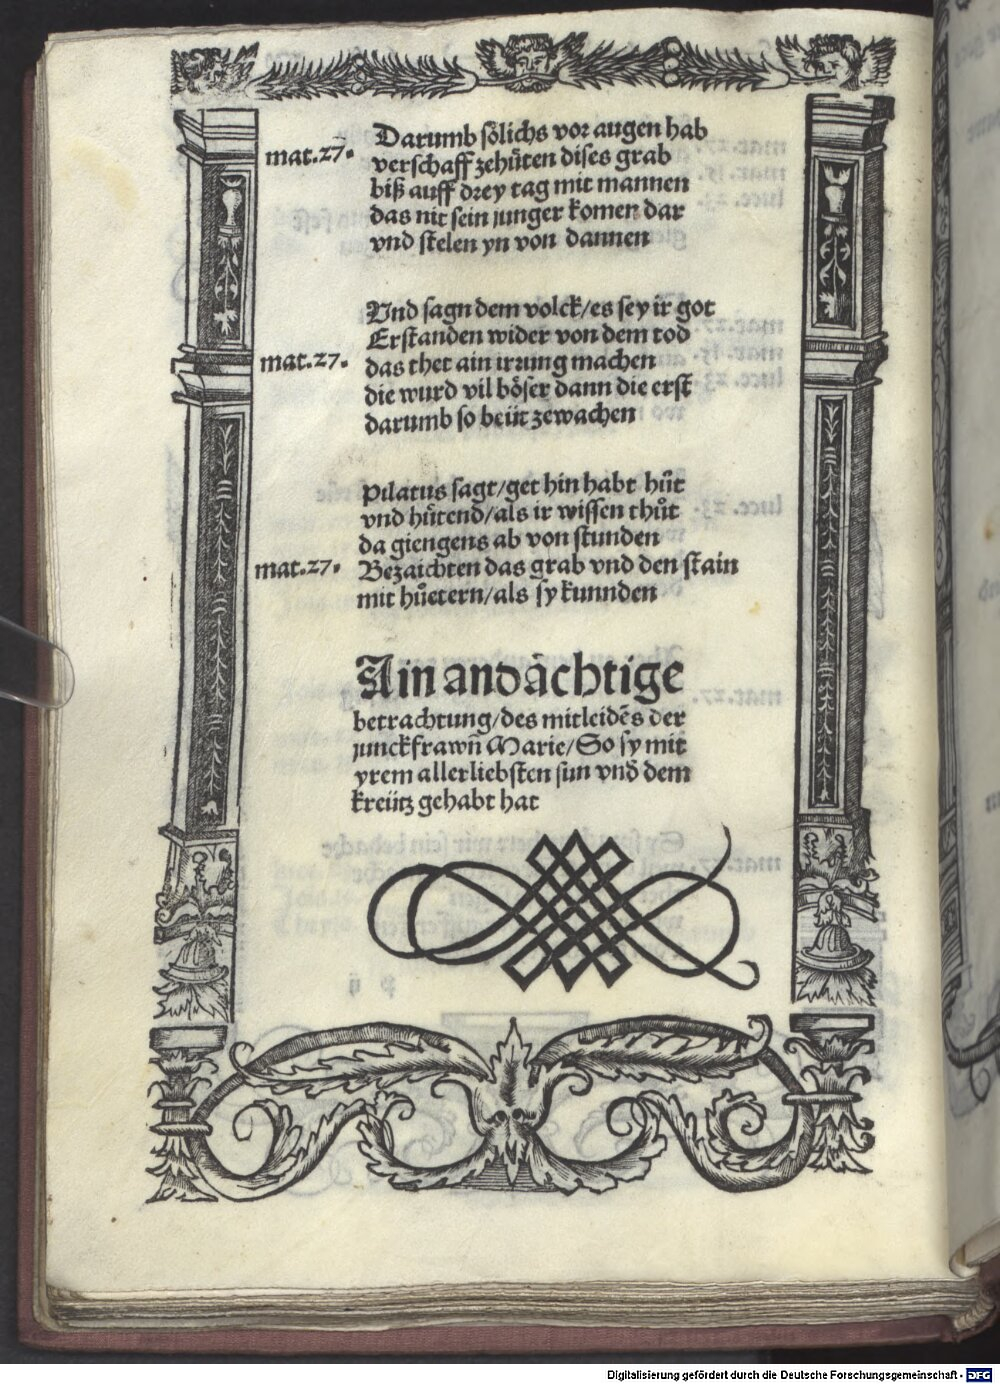 Darumb sölichs vor augen hab
mat.27. verschaff zehüten dises grab
biß auff drey tag mit mannen
das nit sein junger komen dar
vnd stelen yn von dannen
Vnd sagn dem volck/es sey ir got
Erstanden wider von dem tod
mat.27. das thet ain irrung machen
die wurd vil böser dann die erst
darumb so beüt zewachen
Pilatus sagt/get hin habt hůt
vnd hůtend/als ir wissen thůt
da giengens ab von stunden
mat.27. Bezaichten das grab vnd den stain
mit hůetern/als sy kunnden
Ain andächtige
betrachtung/des mitleidẽs der
junckfrawñ Marie/So sy mit
yrem allerliebsten sun vnd dem
kreütz gehabt hat
Digitalisierung gefördert durch die Deutsche Forschungsgemeinschaft - DFG